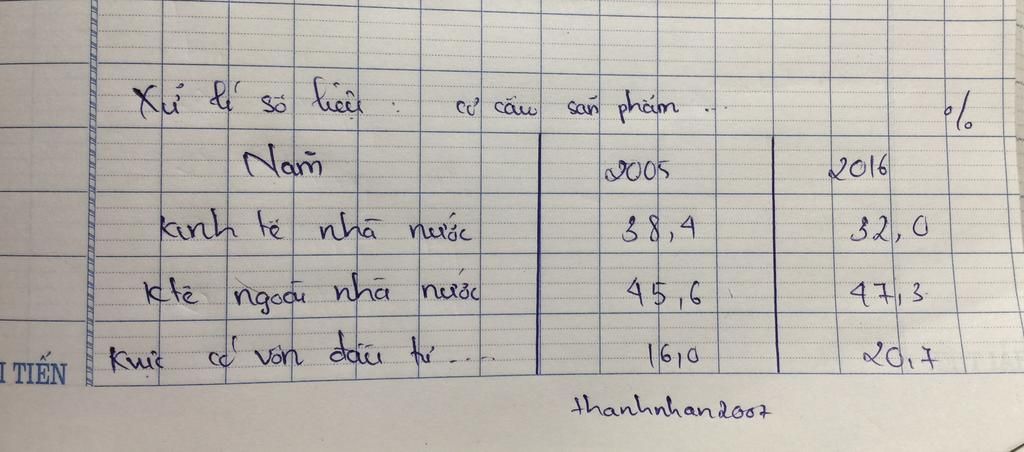 Xử lí số liệu : cơ cấu sản phẩm ... %
Năm 2005 2016
Kinh tế nhà nước 38,4 32,0
Ktế ngoài nhà nước 45,6 47,3
Kvực có vốn đầu tư .... 16,0 20,7
I TIẾN
thanhnhan2007